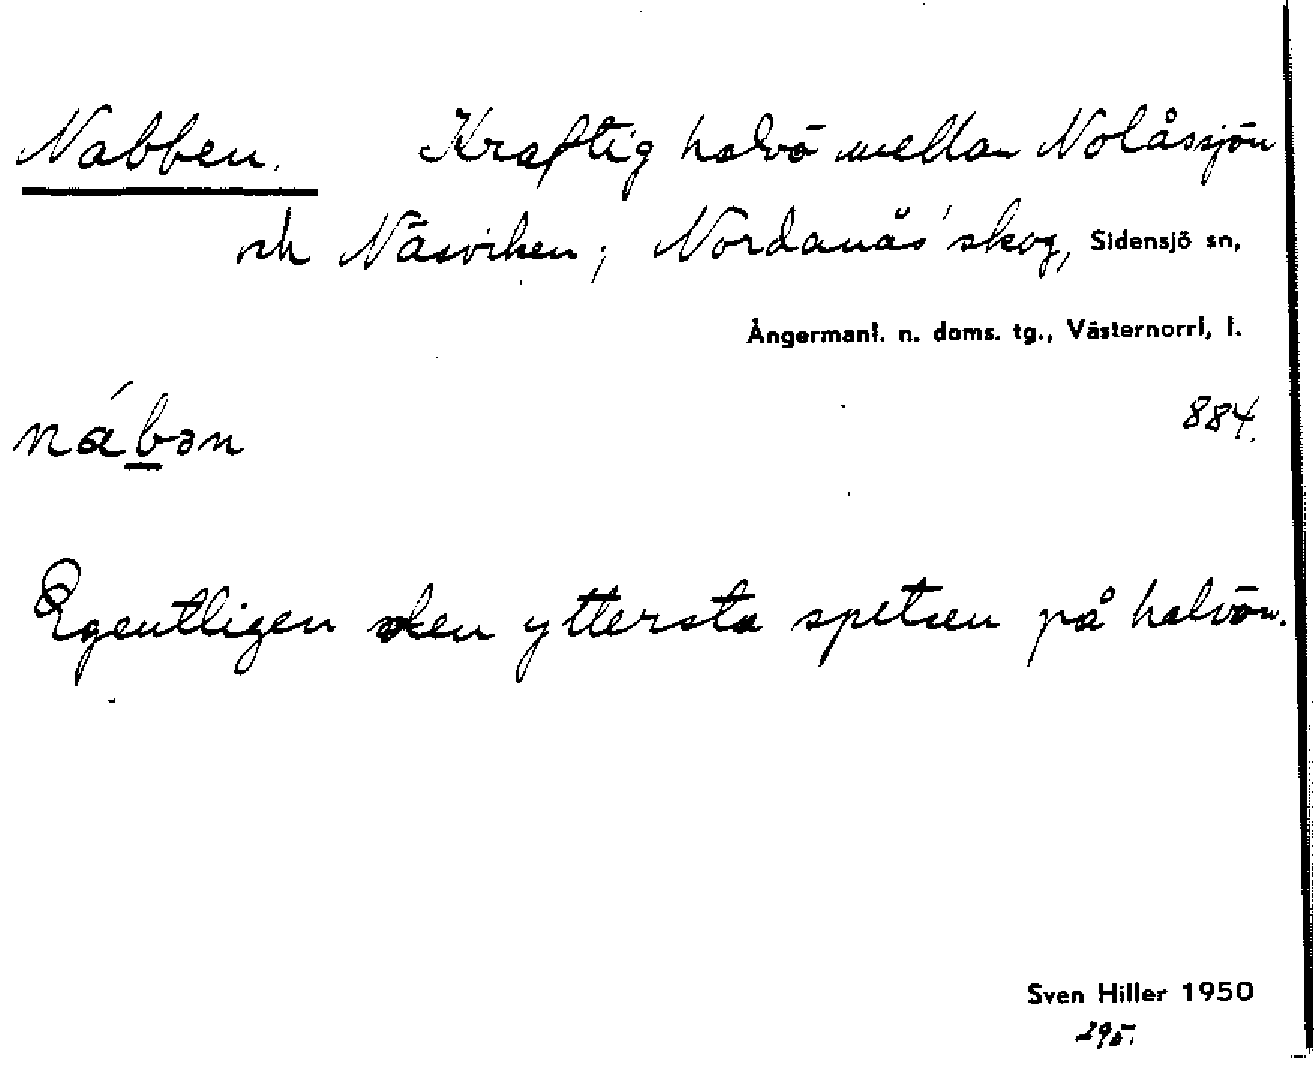 Nabben. Kraftig halvö mellan Nolåssjön
och Näsviken; Nordanås' skog, Sidensjö sn,
Ångermanl. n. doms. tg., Västernorrl, l.
884.
nábən
Egentligen den yttersta spetsen på halvön.
Sven Hiller 1950
295.